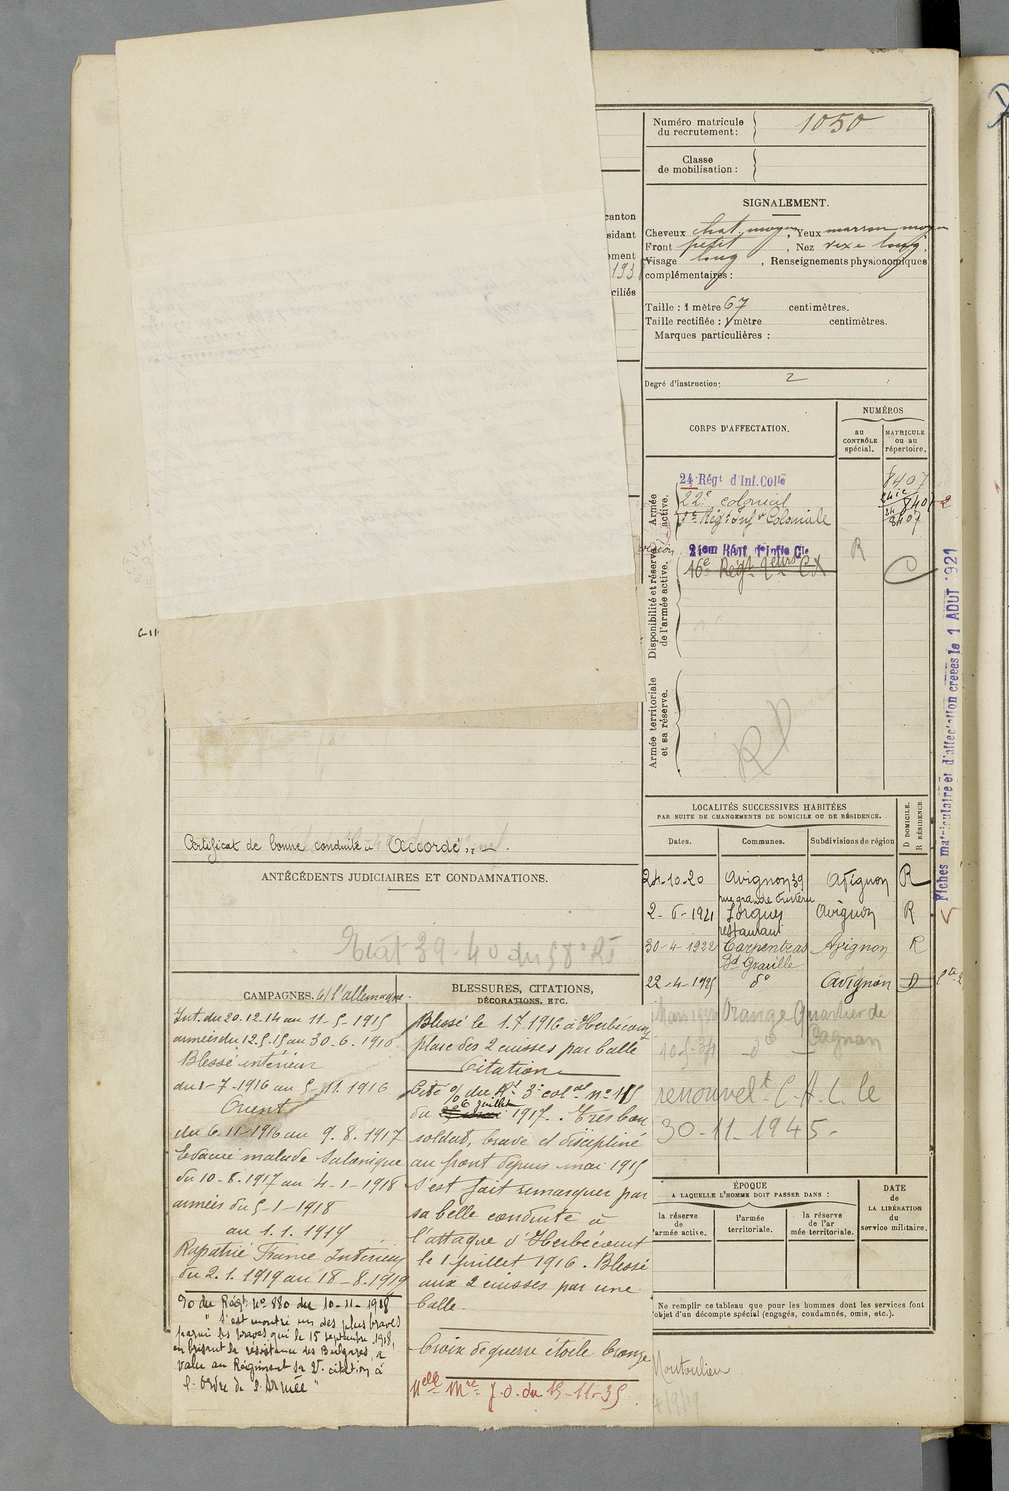 Numéro matricule
du recrutement :
1050
Classe
de mobilisation :
SIGNALEMENT.
Cheveux chat. moyen, Yeux marron moyen
Front petit, Nez long,
Visage long, Renseignements physionomiques
complémentaires :
Taille : 1 mètre 67 centimètres.
Taille rectifiée : 1 mètre centimètres.
Marques particulières :
canton
sidant
ement
193
ciliés
Degré d'instruction : 2
CORPS D'AFFECTATION.
NUMÉROS
au
CONTRÔLE
spécial.
MATRICULE
ou au
répertoire.
Armée
active.
24 Régt d'Inf. Colle
22e colonial
Régt Inf Coloniale
8407
8407
Disponibilité et réserve
de l'armée active.
16e Régt
R
Armée territoriale
et sa réserve.
Fiches matriculaire et d'affectation créées le 1 AOUT 1921
LOCALITÉS SUCCESSIVES HABITÉES
PAR SUITE DE CHANGEMENTS DE DOMICILE OU DE RÉSIDENCE.
Dates.
Communes.
Subdivisions de région
D DOMICILE.
R RÉSIDENCE
24-10-20 Avignon 39 Avignon R
2-6-1921 Sorgues Avignon R
restaurant
30-4-1922 Carpentras Avignon R
Bd Graville
22-4-1925 do Avignon D
Orange Quartier de
Gagnan
renouvelt C.A.C. le
30-11-1945-
Certificat de bonne conduite " Accordé ".
ANTÉCÉDENTS JUDICIAIRES ET CONDAMNATIONS.
Etat 39-40 du 58e RI
CAMPAGNES. C/ l'allemagne.
Int. du 20.12.14 au 11-5-1915
armées du 12.5.15 au 30.6.1916
Blessé intérieur
du 1-7-1916 au 5-11 1916
Orient
du 6-11-1916 au 9.8.1917
Evacué malade Salonique
du 10-8-1917 au 4-1-1918
armées du 5-1-1918
au 1.1.1919
Rapatrié France Intérieur
du 2.1.1919 au 18-8.1919
O du Régt No 880 du 10-11-1918
" S'est montré un des plus braves
parmi les braves qui le 15 septembre 1918,
en brisant la résistance des Bulgares, a
valu au Régiment sa 2e citation à
l'ordre de l'Armée "
BLESSURES, CITATIONS,
DÉCORATIONS, ETC.
Blessé le 1.7.1916 à Herbécourt
plaie des 2 cuisses par balle
Citation
Cité O/ du Rt 3e colal No 115
du 6 juillet 1917. Très bon
soldat, brave et discipliné
au front depuis mai 1915
s'est fait remarquer par
sa belle conduite à
l'attaque d'Herbécourt
le 1 juillet 1916. Blessé
aux 2 cuisses par une
balle.
Croix de guerre étoile bronze
Mlle Mre J.O. du 15-11-35
ÉPOQUE
A LAQUELLE L'HOMME DOIT PASSER DANS :
DATE
de
LA LIBÉRATION
du
service militaire.
la réserve
de
l'armée active.
l'armée
territoriale.
la réserve
de l'ar
mée territoriale.
Ne remplir ce tableau que pour les hommes dont les services font
l'objet d'un décompte spécial (engagés, condamnés, omis, etc.).
Montoulieu